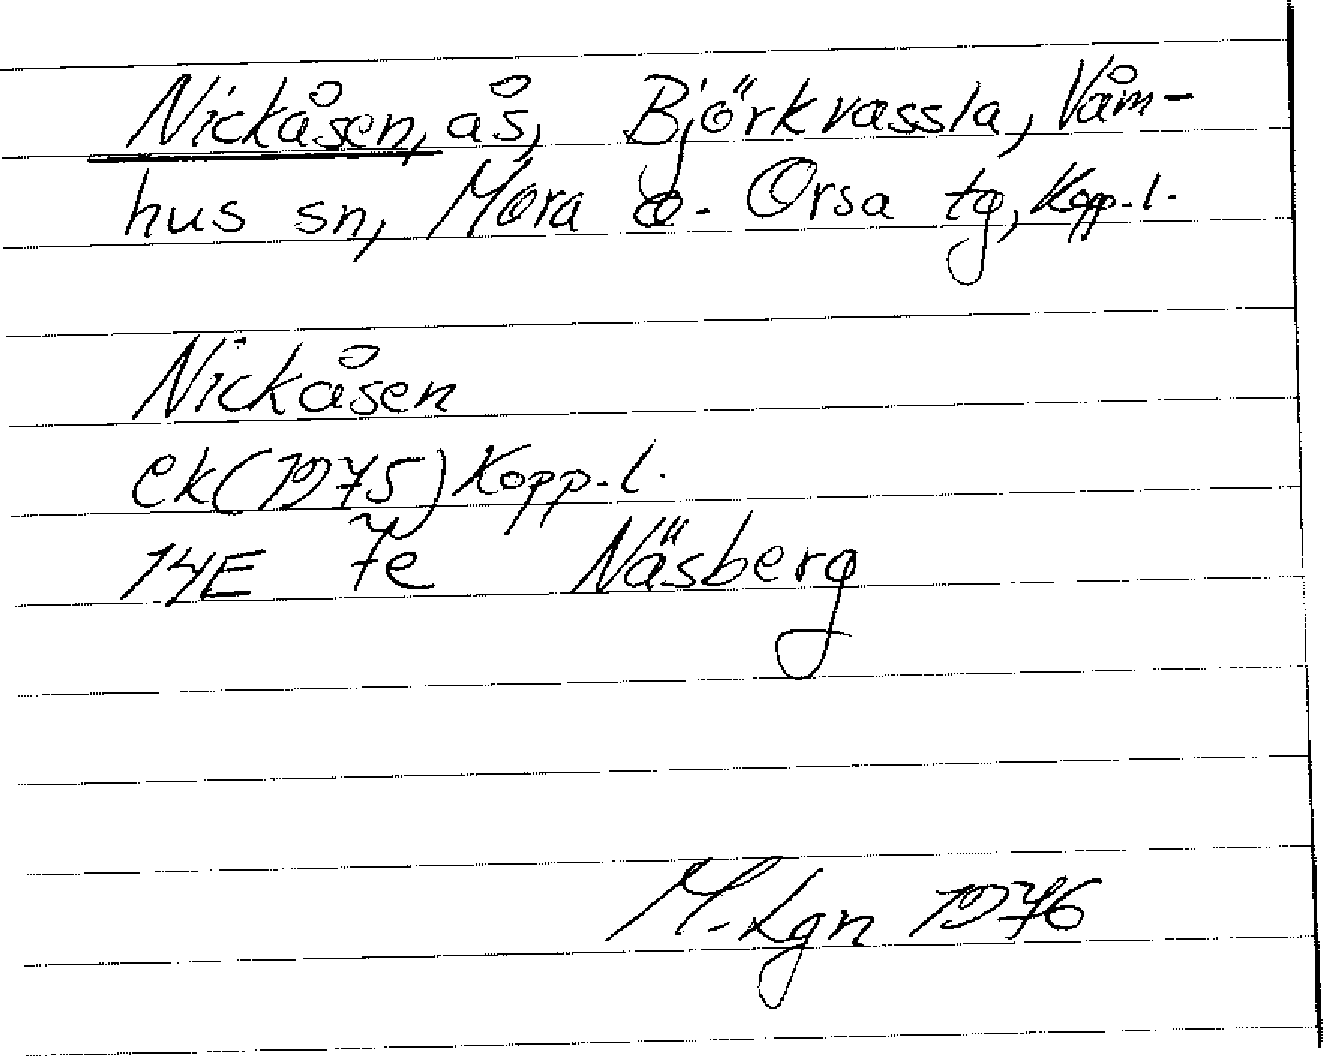 Nickåsen, ås, Björkvassla, Våm-
hus sn, Mora o. Orsa tg, Kopp. l.
Nickåsen
ek (1975) Kopp. l.
14E 7e Näsberg
M. Lgn 1976